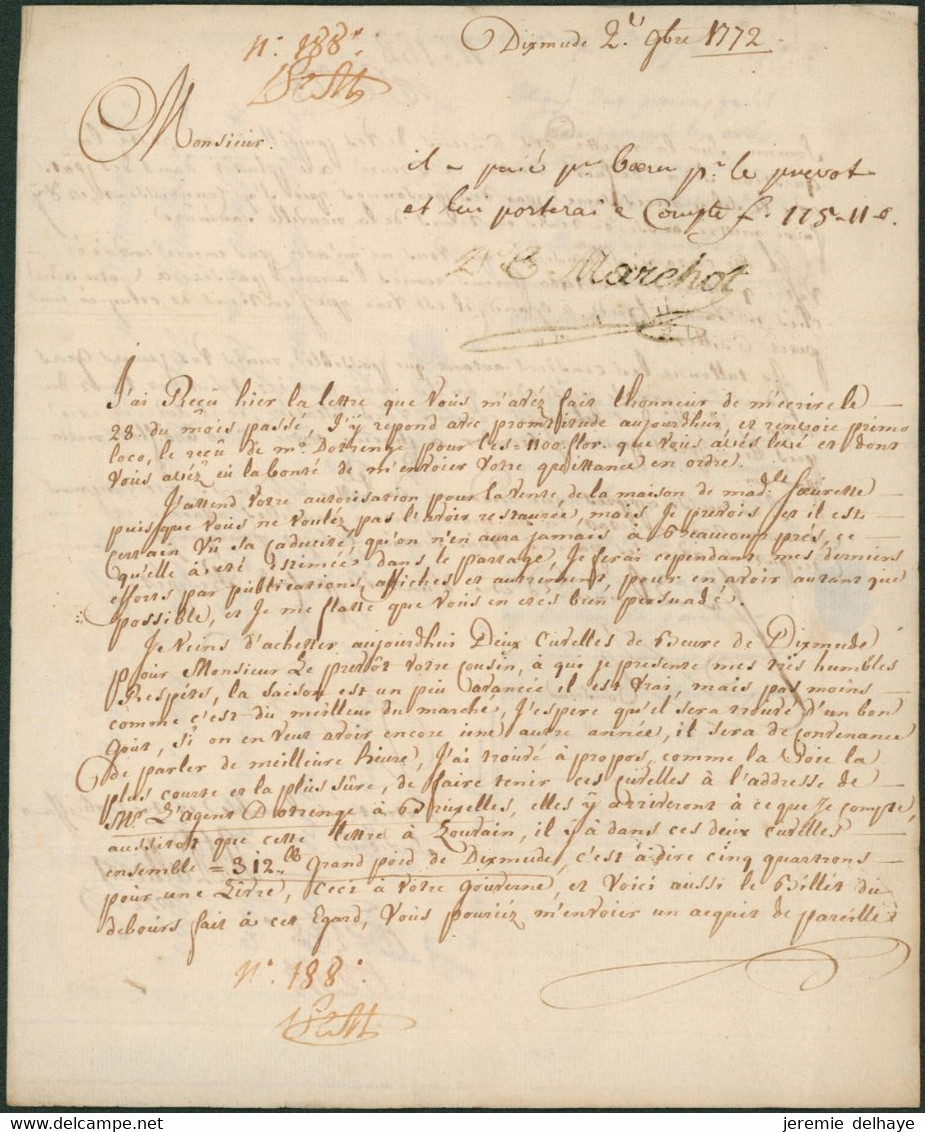 Dixmude 2.e 9bre 1772.
N.° 188.
Monsieur.
il a paié pr. boeure pr. le prevot
et lui porterai e Compte f. 175-11-
Marchot
J'ai Reçu hier la lettre que vous m'avéz fait l'honneur de m'ecrire le
28. du mois passé, j'y repond avec promtitude aujourdhüi, et renvoie primo
loco, le reçû de mr. Dotrenge pour les = 1100 flor. que vous avés levé et dont
vous avéz eü la bonté de m'envoier votre quittance en ordre.
J'attend votre autorisation pour la vente de la maison de madle. Soeurette
puisque vous ne vouléz pas l'avoir restaurée, mais Je prevois et il est
certain vû sa caducité, qu'on n'en aura jamais à beaucoup prés, ce
qu'elle à eté estimée dans le partage, Je ferai cependant mes derniers
efforts par publications, affiches et autrement, pour en avoir autant que
possible, et Je me flatte que vous en etés bien persuadé.
Je viens d'achetter aujourdhui Deux cuvelles de beure de Dixmude
pour Monsieur Le prevôt votre cousin, à qui je presente mes trés humbles
Respéts, la saison est un peu avancée il est vrai, mais pas moins
comme c'est du meilleur du marché, J'espere qu'il sera trouvé d'un bon
goût, Si on en veut avoir encore une autre année, il sera de convenance
de parler de meilleure heure, J'ai trouvé à propos, comme la voie la
plus courte et la plus sûre, de faire tenir ces cuvelles à l'addresse de
Mr. L'agent Dotrenge à Bruxelles, elles ÿ arriveront à ce que Je compte,
aussitot que cette lettre à Louvain, il ÿ à dans ces deux cuvelles
ensemble = 312 lb grand poid de Dixmude, c'est à dire cinq quartrons
pour une Livre, ceci à votre gouverne, et voici aussi le billet du
debours fait à cet Egard, vous pouriéz m'envoier un acquit de pareille
N.° 188.
jeremie delhaye